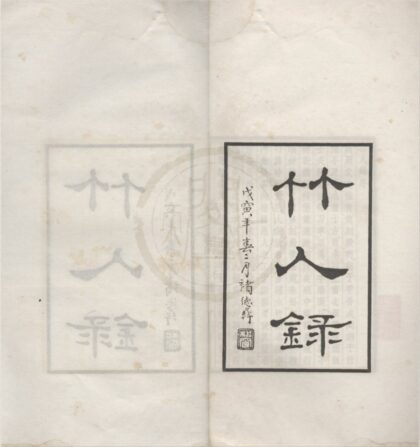 竹人錄
戊寅年春二月褚德彝